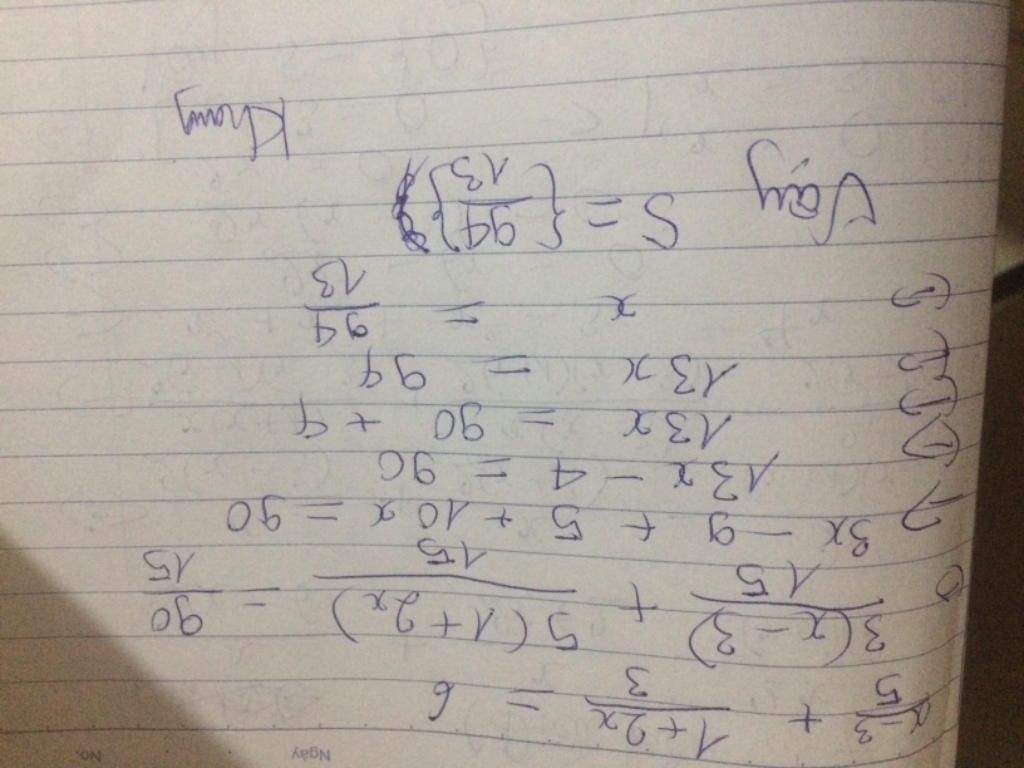 Ngày No.
x-3/5 + 1+2x/3 = 6
3(x-3)/15 + 5(1+2x)/15 = 90/15
3x - 9 + 5 + 10x = 90
13x - 4 = 90
13x = 90 + 4
13x = 94
x = 94/13
Vậy S = {94/13}
Khang